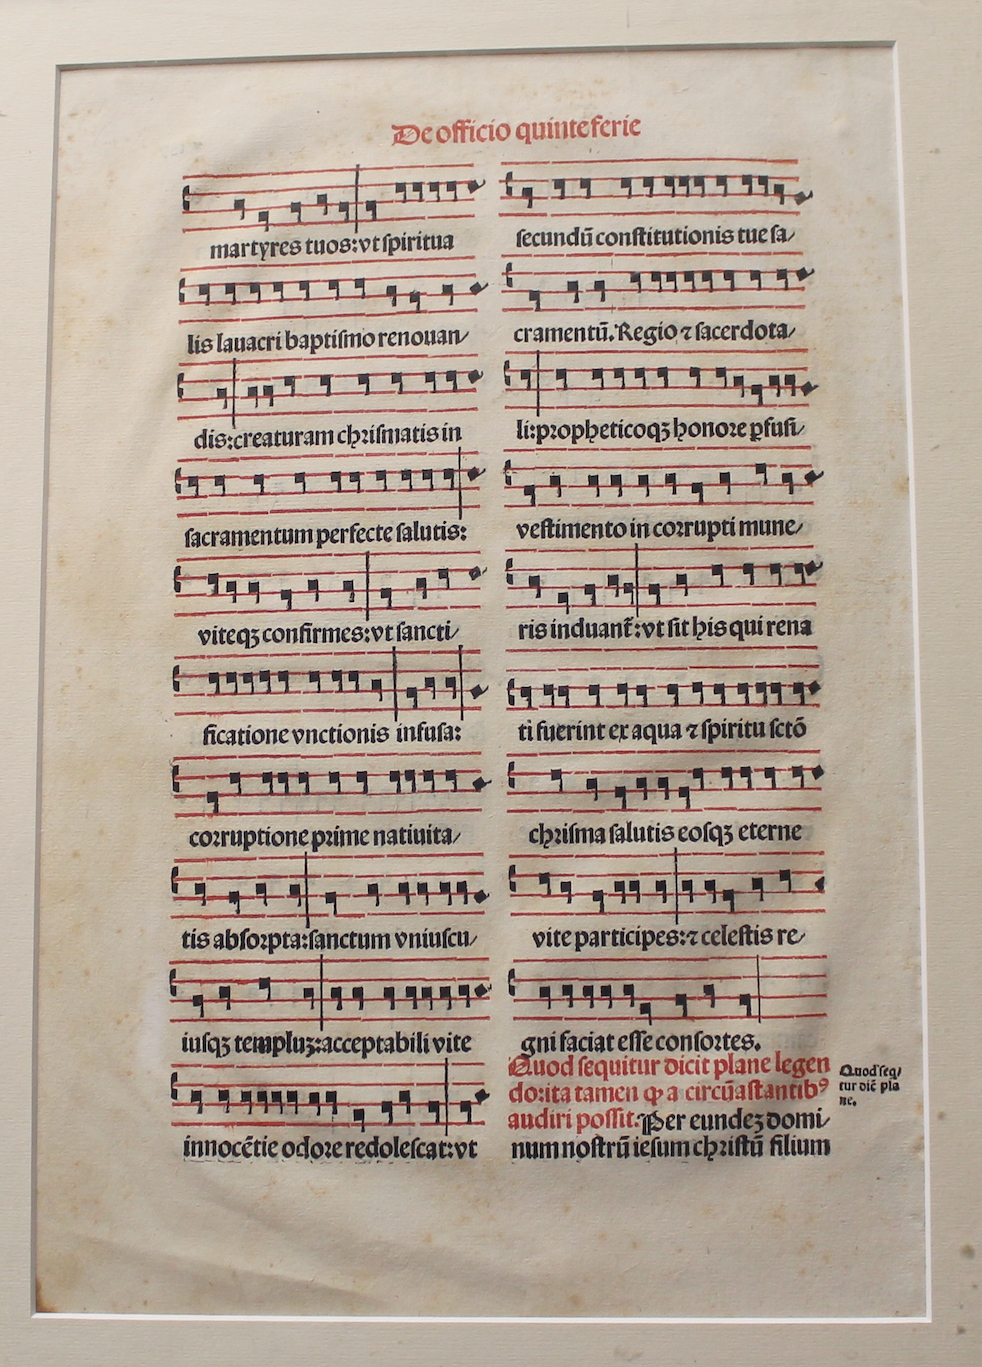 De officio quinte ferie
martyres tuos:vt ſpiritua
lis lauacri baptiſmo renouan/
dis:creaturam chꝛiſmatis in
ſacramentum perfecte ſalutis:
viteqꝫ confirmes:vt ſancti/
ficatione vnctionis infuſa:
coꝛruptione pꝛime natiuita/
tis abſoꝛpta:ſanctum vniuſcu/
iuſqꝫ templuꝫ:acceptabili vite
innocētie odoꝛe redoleſcat:vt
ſecundū conſtitutionis tue ſa/
cramentū. Regio ⁊ ſacerdota/
li:pꝛopheticoqꝫ honoꝛe ꝑfuſi/
veſtimento in coꝛrupti mune/
ris induant᷑:vt ſit his qui rena
ti fuerint ex aqua ⁊ ſpiritu ſctō
chꝛiſma ſalutis eoſqꝫ eterne
vite participes:⁊ celeſtis re/
gni faciat eſſe conſoꝛtes.
Quod ſequitur dicit plane legen
do:ita tamen ꝙ a circūaſtantibꝰ
audiri poſſit. Per eundeꝫ domi/
num noſtrū ieſum chꝛiſtū filium
Quod ſeq/
tur dic̄ pla
ne.